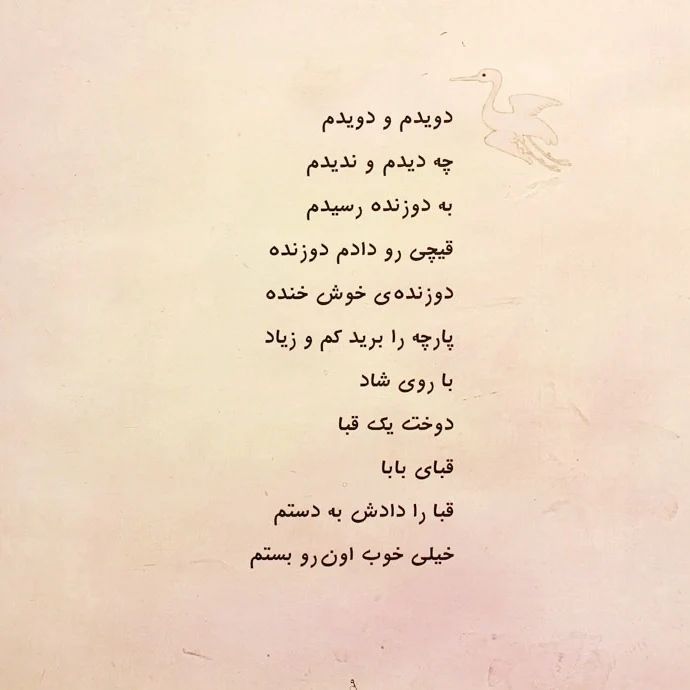 دویدم و دویدم
چه دیدم و ندیدم
به دوزنده رسیدم
قیچی رو دادم دوزنده
دوزنده‌ی خوش خنده
پارچه را برید کم و زیاد
با روی شاد
دوخت یک قبا
قبای بابا
قبا را دادش به دستم
خیلی خوب اون‌رو بستم